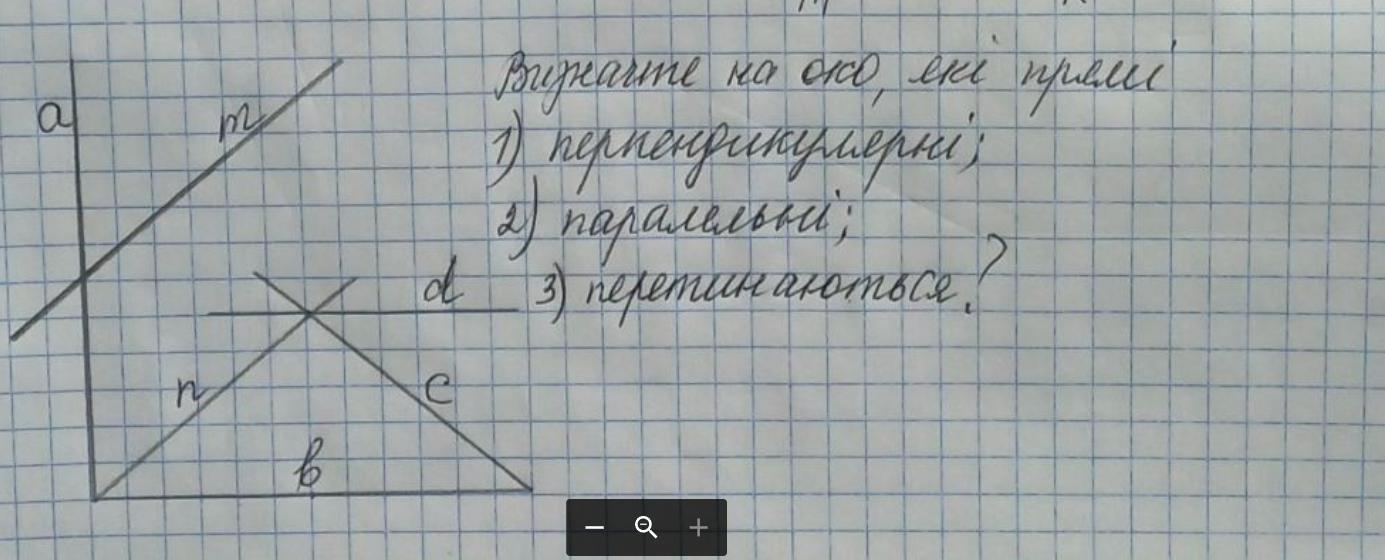 a
m
Визначте на око, які прямі
1) перпендикулярні;
2) паралельні;
3) перетинаються?
d
n
c
b